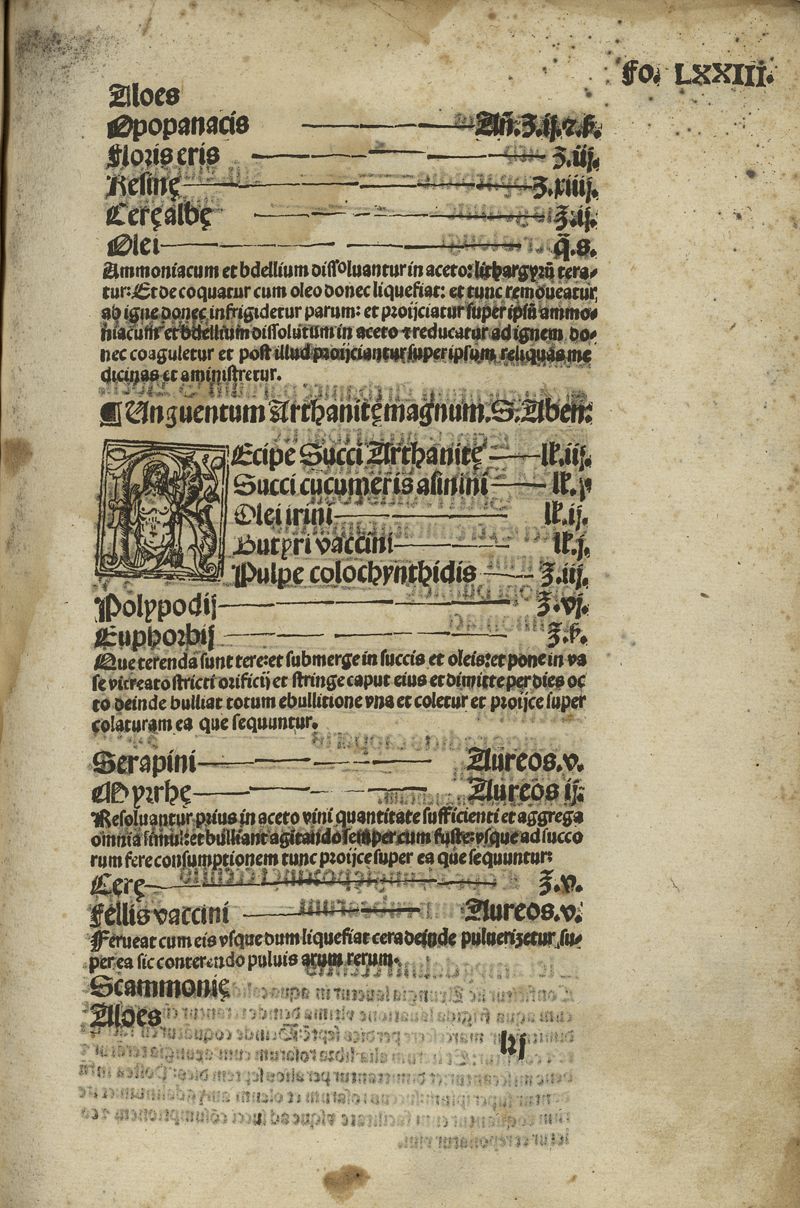 fo. LXXIII.
Aloes
Opopanacis Añ.ʒ.ij.⁊.ß.
Floris eris ʒ.iij.
Resinę ʒ.xiiij.
Cerę albę ʒ.ij.
Olei q̃.s.
Ammoniacum et bdellium dissoluantur in aceto: lithargyrũ tera-
tur: Et decoquatur cum oleo donec liquefiat: et tunc remoueatur
ab igne donec infrigidetur parum: et proijciatur super ipsũ ammo-
niacum et bdellium dissolutum in aceto ⁊ reducatur ad ignem do-
nec coaguletur et post illud proijciantur super ipsum reliquas me
dicinas et aministretur.
¶ Unguentum Arthanitę magnum. S. Aben:
REcipe Succi Arthanitę lß.iij.
Succi cucumeris asinini lß.
Olei irini lß.ij.
Butyri vaccini lß.j.
Pulpe colochynthidis ʒ.iij.
Polypodij ʒ.vj.
Euphorbij ʒ.ß.
Que terenda sunt tere: et submerge in succis et oleis: et pone in va
se vitreato stricti orificij et stringe caput eius et dimitte per dies oc
to deinde bulliat totum ebullitione vna et coletur et proijce super
colaturam ea que sequuntur.
Serapini Aureos.v.
Myrrhę Aureos ij.
Resoluantur prius in aceto vini quantitate sufficienti et aggrega
omnia simul: et bulliant agitando semper cum fuste: vsque ad succo
rum fere consumptionem tunc proijce super ea que sequuntur:
Cerę ʒ.v.
Fellis vaccini Aureos.v.
Ferueat cum eis vsque dum liquefiat cera deinde puluerizetur su-
per ea sic conterendo puluis arum rerum.
Scammonię
Aloes
kj